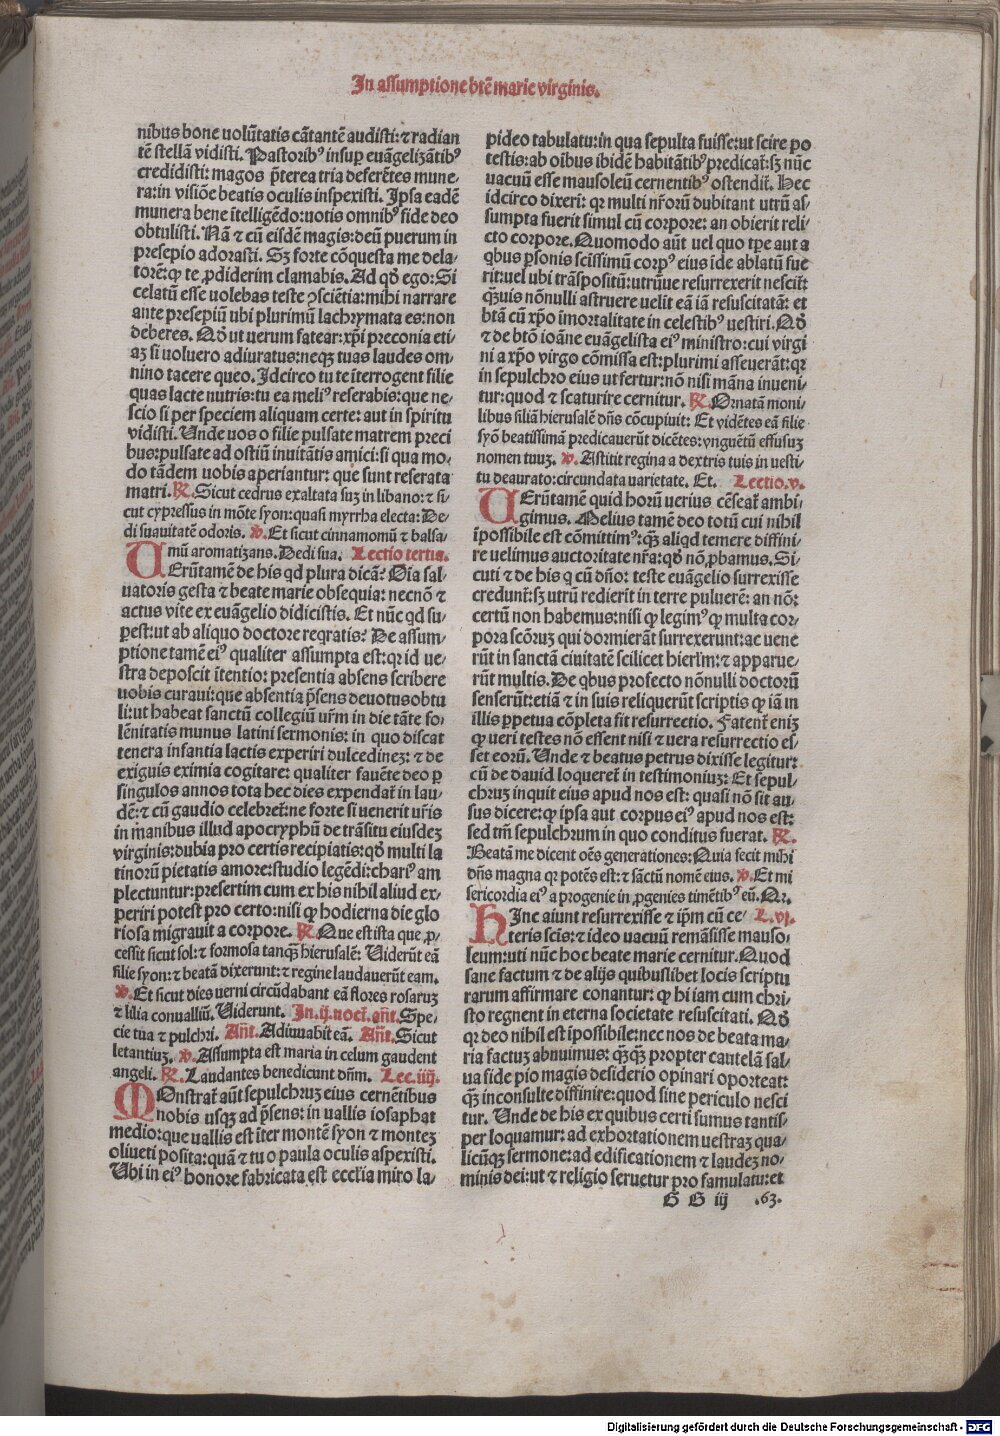 In assumptione btē marie virginis.
nibus bone uolūtatis cātantē audisti: ⁊ radian
tē stellā vidisti. Pastoribꝰ insuꝑ euāgelizātibꝰ
credidisti: magos p̄terea tria deferētes mune-
ra: in visiōe beatis oculis inspexisti. Ipsa eadē
munera bene ītelligēdo: uotis omnibꝰ fide deo
obtulisti. Nā ⁊ cū eisdē magis: deū puerum in
presepio adorasti. Sꝫ forte cōquesta me dela-
torē: ꝙ te ꝓdiderim clamabis. Ad qđ ego: Si
celatū esse uolebas teste ꝯsciētia: mihi narrare
ante presepiū ubi plurimū lachrymata es: non
deberes. Nā ut uerum fatear: xp̄i preconia eti-
aꝫ si uoluero adiuratus: neqꝫ tuas laudes om-
nino tacere queo. Idcirco tu te īterrogent filie
quas lacte nutris: tu ea meliꝰ reserabis: que ne-
scio si per speciem aliquam certe: aut in spiritu
vidisti. Unde uos o filie pulsate matrem preci
bus: pulsate ad ostiū inuitātis amici: si qua mo-
do tādem uobis aperiantur: que sunt reserata
matri. ℟. Sicut cedrus exaltata suꝫ in libano: ⁊ si-
cut cypressus in mōte syon: quasi myrrha electa: De-
di suauitatē odoris. ℣. Et sicut cinnamomū ⁊ balsa-
mū aromatizans. Dedi sua. Lectio tertia.
UErūtamē de his qd plura dicā? Oia sal-
uatoris gesta ⁊ beate marie obsequia: necnō ⁊
actus vite ex euāgelio didicistis. Et nūc qd su-
ꝑest: ut ab aliquo doctore reqratis? De assum-
ptione tamē eiꝰ qualiter assumpta est: qr id ue-
stra deposcit ītentio: presentia absens scribere
uobis curaui: que absentia p̄sens deuotus obtu
li: ut habeat sanctū collegiū ur̄m in die tāte so-
lēnitatis munus latini sermonis: in quo discat
tenera infantia lactis experiri dulcedinez: ⁊ de
exiguis eximia cogitare: qualiter fauēte deo ꝑ
singulos annos tota hec dies expendat̄ in lau-
dē: ⁊ cū gaudio celebret̄: ne forte si uenerit ur̄is
in manibus illud apocryphū de trāsitu eiusdez
virginis: dubia pro certis recipiatis: qđ multi la
tinorū pietatis amore: studio legēdi: chariꝰ am
plectuntur: presertim cum ex his nihil aliud ex-
periri potest pro certo: nisi ꝙ hodierna die glo
riosa migrauit a corpore. ℟. Que est ista que ꝓ-
cessit sicut sol: ⁊ formosa tanqꝫ hierusalē: Uiderūt eā
filie syon: ⁊ beatā dixerunt: ⁊ regine laudauerūt eam.
℣. Et sicut dies uerni circūdabant eā flores rosaruꝫ
⁊ lilia conualliū. Uiderunt. In .ij. noct̄. an̄t. Spe-
cie tua ⁊ pulchri. An̄t. Adiuuabit eā. An̄t. Sicut
letantiuꝫ. ℣. Assumpta est maria in celum gaudent
angeli. ℟. Laudantes benedicunt dn̄m. Lec. iiij.
MOnstrat̄ aūt sepulchruꝫ eius cernētibus
nobis usqꝫ ad p̄sens: in uallis iosaphat
medio: que uallis est īter montē syon ⁊ montez
oliueti posita: quā ⁊ tu o paula oculis aspexisti.
Ubi in eiꝰ honore fabricata est eccl̄ia miro la-
pideo tabulatu: in qua sepulta fuisse: ut scire po
testis: ab oībus ibidē habitātibꝰ predicat̄: sꝫ nūc
vacuū esse mausoleū cernentibꝰ ostendit̄. Hec
idcirco dixeri: qr multi nr̄orū dubitant utrū as-
sumpta fuerit simul cū corpore: an obierit reli-
cto corpore. Quomodo aūt uel quo tp̄e aut a
qbus ꝑsonis scīssimū corpꝰ eius īde ablatū fue
rit: uel ubi trāspositū: utrūue resurrexerit nescit̄:
qꝫuis nōnulli astruere uelit eā iā resuscitatā: et
btā cū xp̄o īmortalitate in celestibꝰ uestiri. Qđ
⁊ de btō ioāne euāgelista eiꝰ ministro: cui virgi
ni a xp̄o virgo cōmissa est: plurimi asseuerāt: qr
in sepulchro eius ut fertur: nō nisi māna inueni-
tur: quod ⁊ scaturire cernitur. ℟. Ornatā moni-
libus filiā hierusalē dn̄s cōcupiuit: Et vidētes eā filie
syō beatissimā predicauerūt dicētes: vnguētū effusuꝫ
nomen tuuꝫ. ℣. Astitit regina a dextris tuis in uesti-
tu deaurato: circundata uarietate. Et. Lectio .v.
UErūtamē quid horū uerius cēseat̄ ambi-
gimus. Melius tamē deo totū cui nihil
īpossibile est cōmittimꝰ: qꝫ aliqd temere diffini-
re uelimus auctoritate nr̄a: qđ nō ꝓbamus. Si-
cuti ⁊ de his q cū dn̄o: teste euāgelio surrexisse
credunt̄: sꝫ utrū redierit in terre puluerē: an nō:
certū non habemus: nisi ꝙ legimꝰ ꝙ multa cor-
pora scōruꝫ qui dormierāt surrexerunt: ac uene
rūt in sanctā ciuitatē scilicet hierl̄m: ⁊ apparue-
rūt multis. De qbus profecto nōnulli doctorū
senserūt: etiā ⁊ in suis reliquerūt scriptis ꝙ iā in
illis ꝑpetua cōpleta sit resurrectio. Fatent̄ eniꝫ
ꝙ ueri testes nō essent nisi ⁊ uera resurrectio es-
set eorū. Unde ⁊ beatus petrus dixisse legitur:
cū de dauid loqueret̄ in testimoniuꝫ: Et sepul-
chruꝫ inquit eius apud nos est: quasi nō sit au-
sus dicere: ꝙ ipsa aut corpus eiꝰ apud nos est:
sed tm̄ sepulchrum in quo conditus fuerat. ℟.
Beatā me dicent oēs generationes: Quia fecit mihi
dn̄s magna qr potēs est: ⁊ sāctū nomē eius. ℣. Et mi
sericordia eiꝰ a progenie in ꝓgenies timētibꝰ eū. Qr.
HInc aiunt resurrexisse ⁊ ip̄m cū ce- L. vj.
teris scīs: ⁊ ideo uacuū remāsisse mauso-
leum: uti nūc hoc beate marie cernitur. Quod
sane factum ⁊ de alijs quibuslibet locis scriptu
rarum affirmare conantur: ꝙ hi iam cum chri-
sto regnent in eterna societate resuscitati. Qđ
qr deo nihil est īpossibile: nec nos de beata ma-
ria factuꝫ abnuimus: qꝫqꝫ propter cautelā sal-
ua fide pio magis desiderio opinari oporteat:
qꝫ inconsulte diffinire: quod sine periculo nesci
tur. Unde de his ex quibus certi sumus tantis-
per loquamur: ad exhortationem uestraꝫ qua-
licūqꝫ sermone: ad edificationem ⁊ laudeꝫ no-
minis dei: ut ⁊ religio seruetur pro famulatu: et
G G iij .63.
Digitalisierung gefördert durch die Deutsche Forschungsgemeinschaft - DFG